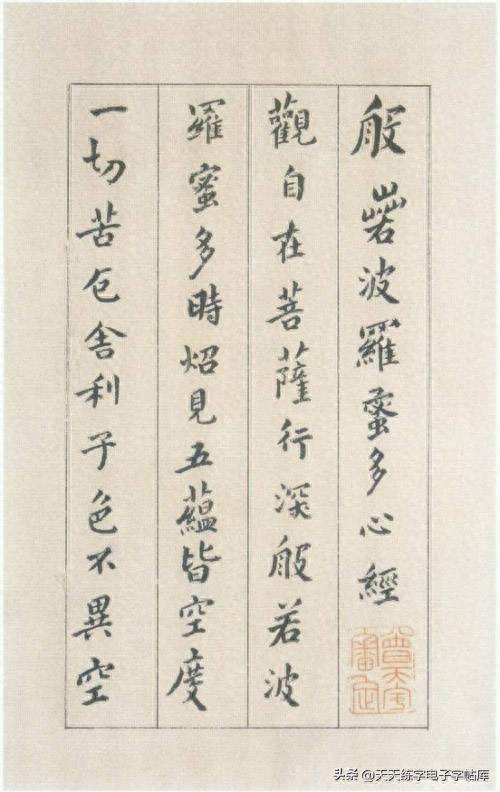 般若波羅蜜多心經
觀自在菩薩行深般若波
羅蜜多時炤見五蘊皆空度
一切苦厄舍利子色不異空
头条 @天天练字电子字帖库